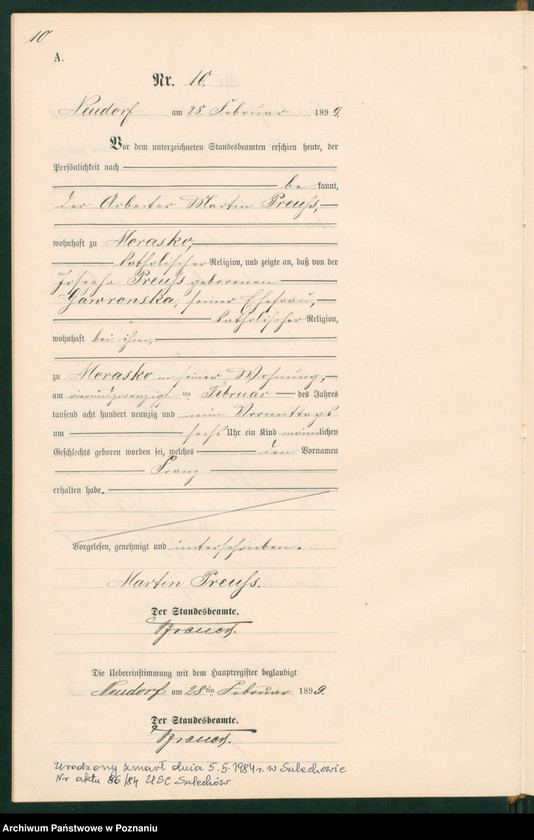 10
A.
Nr. 10.
Neudorf am 28. Februar 1899.
Vor dem unterzeichneten Standesbeamten erschien heute, der
Persönlichkeit nach
be kannt,
der Arbeiter Martin Preuß,
wohnhaft zu Morasko,
katholischer Religion, und zeigte an, daß von der
Josepha Preuß geborenen
Gawronska, seiner Ehefrau,
katholischer Religion,
wohnhaft bei ihm,
zu Morasko in seiner Wohnung,
am vierundzwanzigsten Februar des Jahres
tausend acht hundert neunzig und neun Vormittags
um sechs Uhr ein Kind männlichen
Geschlechts geboren worden sei, welches den Vornamen
Franz
erhalten habe.
Vorgelesen, genehmigt und unterschrieben.
Martin Preuß.
Der Standesbeamte.
Die Uebereinstimmung mit dem Hauptregister beglaubigt
Neudorf am 28ten Februar 1899.
Der Standesbeamte.
Urodzony zmarł dnia 5.5.1984 r. w Sulechowie
Nr aktu 86/84 USC Sulechów
Archiwum Państwowe w Poznaniu